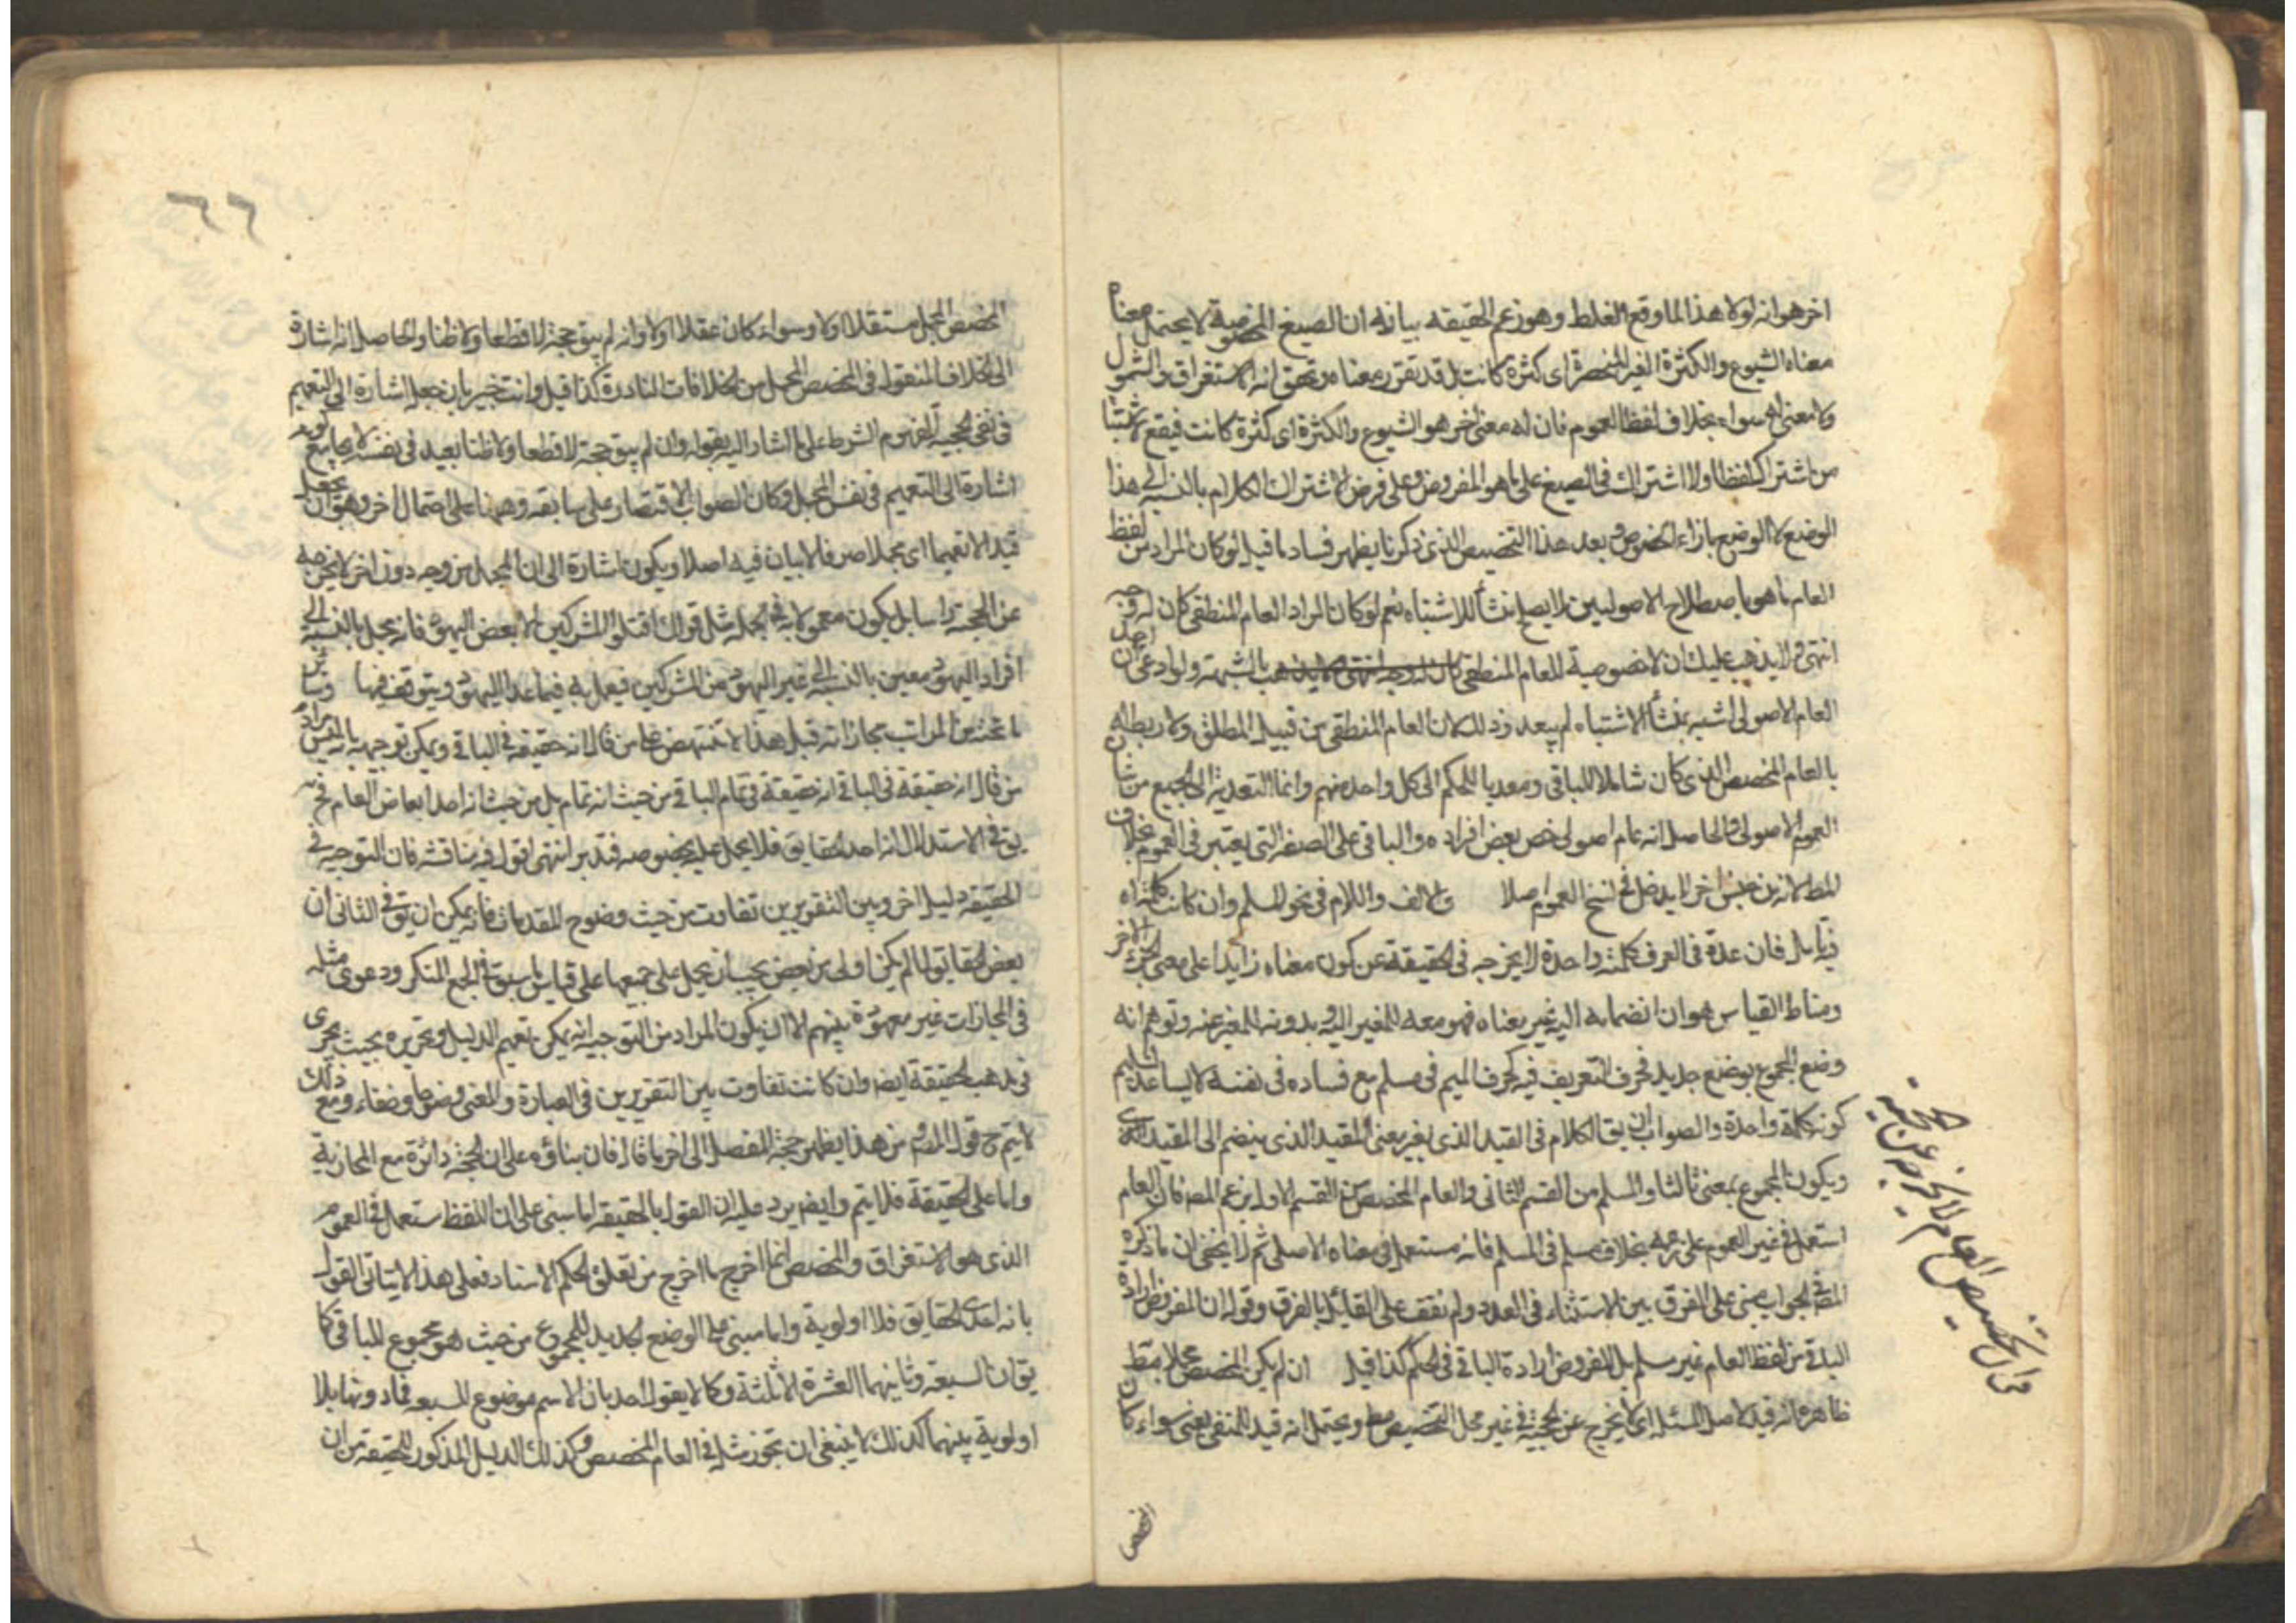 اخر هو انه لولا هذا لما وقع الغلط وهو زعم الحقيقة بيانه ان الصيغ المخصوصة لا يحتمل معناه
معناه الشيوع والكثرة الغير المنحصرة اى كثرة كانت بل قد تقرر معناه وتحقق انه الاستغراق والشمول
ولا معنى له سواه بخلاف لفظ العموم فان له معنى اخر هو الشيوع والكثرة اى كثرة كانت فيقع
من اشتراك لفظا ولا اشتراك فى الصيغ على ما هو المفروض وعلى فرض الاشتراك الكلام بالنسبة الى هذا
الوضع لا الوضع بازاء الخصوص بعد هذا التخصيص الذى ذكرنا يظهر فساد ما قيل لو كان المراد من لفظ
العام ما هو باصطلاح الاصوليين لا يصلح منشأ للاشتباه نعم لو كان المراد العام المنطقى كان له وجه
انتهى ولا يذهب عليك ان لا خصوصية للعام المنطقى بالشبهة ولو ادعى احد ان
العام الاصولى اشبه بمنشأ الاشتباه لم يبعد وذلك لان العام المنطقى من قبيل المطلق ولا ربط له
بالعام المخصص الذى كان شاملا للباقى ومعديا للحكم الى كل واحد منهم وانما التعدية الى الجميع من شان
العموم الاصولى والحاصل انه عام اصولى خص بعض افراده والباقى على الصفة التى يعتبر فى العموم بخلاف
المطلق لانه من جنس اخر لا يدخل فى سنخ العموم اصلا والالف واللام فى نحو المسلم وان كانت كلمة اه
فيه تامل فان عده فى العرف كلمة واحدة لا يخرجه فى الحقيقة عن كون معناه زايدا على معنى الجزء الاخر
ومناط القياس هو ان انضمامه اليه غير معناه فهو معه للمغير اليه وبدونه للمغير عنه وتوهم انه
وضع المجموع بوضع جديد فحرف التعريف فيه كحرف الميم فى مسلم مع فساده فى نفسه لا يساعده تسليم
كونه كلمة واحدة والصواب ان يق الكلام فى القيد الذى يغير معنى المقيد الذى ينضم الى المقيد
ويكون المجموع بمعنى ثالث او المسلم من القسم الثانى والعام المخصص من القسم الاول بزعم المص فان العام
استعمل فى غير العموم على زعمه بخلاف مسلم فى المسلم فانه مستعمل فى معناه الاصلى ثم لا يخفى ان ما ذكره
المص فى الجواب مبنى على الفرق بين الاستثناء فى العدد ولم نقف على القائل بالفرق وقوله ان المفروض ارادة
الباقى من لفظ العام غير مسلم بل المفروض ارادة الباقى فى الحكم كذا قيل ان لم يكن المخصص مجملا مط
ظاهره انه قيد لاصل المسئلة اى لا يخرج عن الحجية فى غير محل التخصيص مط ويحتمل انه قيد المنفى يعنى سواء كان
المخصص
قوله التخصيص العام لا يخرجه عن الحجية
٦٦
المخصص المجمل مستقلا او لا وسواء كان عقلا او لا وانه لم يبق حجة لا قطعا ولا ظنا والحاصل انه اشارة
الى الخلاف المنقول فى المخصص المجمل من الخلافات النادرة كذا قيل وانت خبير بان جعله اشارة الى التعميم
فى نفى الحجية المفهوم الشرط على ما اشار اليه بقوله وان لم يبق حجة لا قطعا ولا ظنا بعيد فى نفسه لا يجامع كونه
اشارة الى التعميم فى نفس المجمل وكان الصواب الاقتصار على سابقه وههنا على احتمال اخر وهو ان يجعل
قيدا لا تعميما اى مجملا صرفا لا بيان فيه اصلا ويكون اشارة الى ان المجمل من وجه دون اخر لا يخرجه
عن الحجية راسا بل يكون معمولا به فى الجملة مثل قولك اقتلوا المشركين الا بعض اليهود فانه مجمل بالنسبة الى
افراد اليهود معين بالنسبة الى غير اليهود من المشركين فيعمل به فيما عدا اليهود ويتوقف فيها وساير
ما تحته من المراتب مجازاته قيل هذا لا ينتهض على من قال انه حقيقة فى الباقى ويمكن توجيهه بان مراد
من قال انه حقيقة فى الباقى انه حقيقة فى تمام الباقى من حيث انه تمام بل من حيث انه احد ابعاض العام فح
يق فى الاستدلال انه احد الحقايق فلا يحمل عليه بخصوصه فتدبر انتهى اقول فيه مناقشة فان التوجيه فى
الحقيقة دليل اخر وبين التقريرين تفاوت من حيث وضوح المقدمات فانه يمكن ان يق فى الثانى ان
بعض الحقايق لما لم يكن اولى من بعض يجب ان يحمل على جميعها على قياس ما سبق فى الجمع المنكر ودعوى مثله
فى المجازات غير معهودة بينهم الا ان يكون المراد من التوجيه انه يمكن تعميم الدليل وتحريره بحيث يجرى
فى مذهب الحقيقة ايضا وان كانت تفاوت بين التقريرين فى العبارة والمعنى وضوحا وخفاء ومع ذلك
لا يتم ح قوله المص من هذا يظهر حجة المفصل الى اخر ما قال فان بناؤه على ان الحجة دائرة مع المجازية
واما على الحقيقة فلا يتم وايضا يرد عليه ان القول بالحقيقة اما مبنى على ان اللفظ مستعمل فى العموم
الذى هو الاستغراق والمخصص انما اخرج ما اخرج من تعلق الحكم الاسناد فعلى هذا لا يتاتى القول
بانه احدى الحقايق فلا اولوية واما مبنى على الوضع الجديد للمجموع من حيث هو مجموع للباقى كما
يق ان للسبعة وثانيهما العشرة الا ثلثة وكما لا يقول احد بان الاسم موضوع للسبعة فما دونها بلا
اولوية بينهما كذلك لا ينبغى ان تجوز مثله فى العام المخصص وكذلك الدليل المذكور للحقيقة من ان